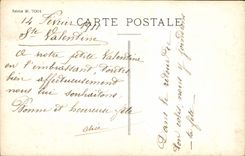 Edition M. TOUX
CARTE POSTALE
14 Fevrier 1911
Ste Valentine
A notre petite Valentine
en l'embrassant, toutes
bien affectueusement
nous lui souhaitons
Bonne et heureuse fête
Alice
Dans le
ton
la fête